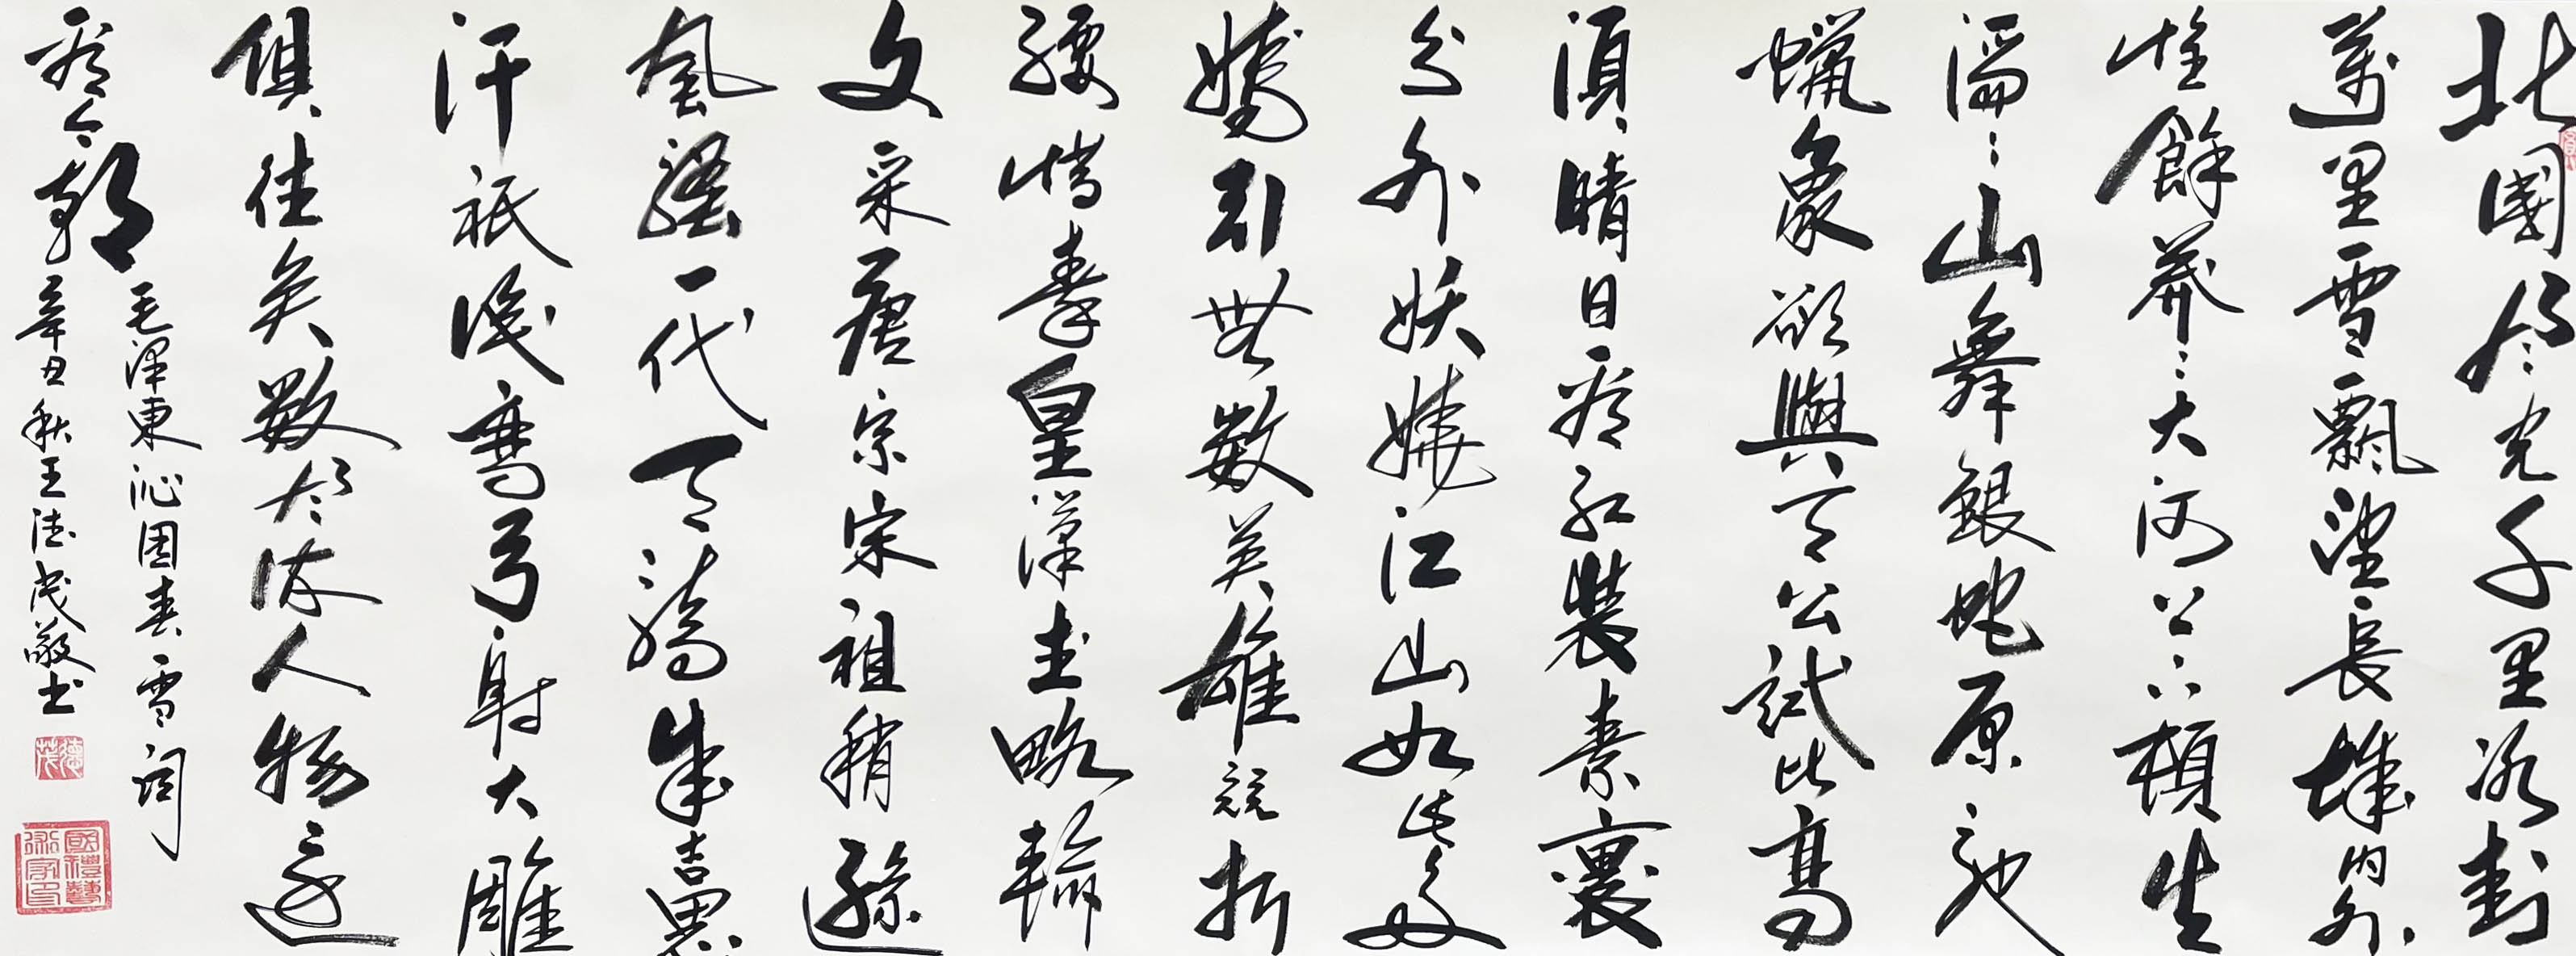 北國風光千里冰封
萬里雪飄望長城内外
惟餘莽〻大河上下頓失
滔〻山舞銀蛇原馳
蠟象欲與天公試比高
須晴日看紅裝素裹
分外妖嬈江山如此多
嬌引無數英雄競折
腰惜秦皇漢武略輸
文采唐宗宋祖稍遜
風騷一代天驕成吉思
汗祇識彎弓射大雕
俱往矣數風流人物還
看今朝
毛澤東沁園春雪詞
辛丑秋王德茂敬书
德茂
國禮藝術家印